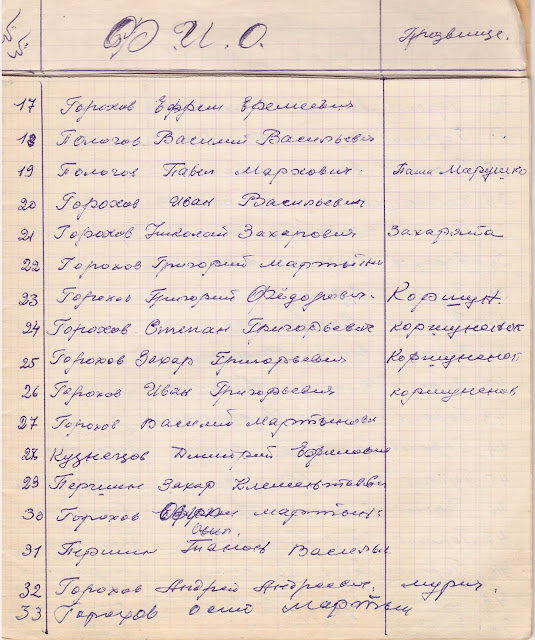 Ф. И. О. Прозвище.
17 Горохов Ефрем Еремеевич
18 Пологов Василий Васильевич
19 Пологов Павел Маркович. Паша Марушко
20 Горохов Иван Васильевич
21 Горохов Николай Захарович Захарята
22 Горохов Григорий Мартын
23 Горохов Григорий Фёдорович. Коршун.
24 Горохов Степан Григорьевич коршуненок
25 Горохов Захар Григорьевич Коршуненок
26 Горохов Иван Григорьевич коршуненок
27 Горохов Василий Мартынович
28 Кузнецов Дмитрий Ефимович
29 Першин Захар Клементьевич
30 Горохов Мартын.
31 Першин Василь
32 Горохов Андрей Андреевич. мурич.
33 Горохов осип Мартын